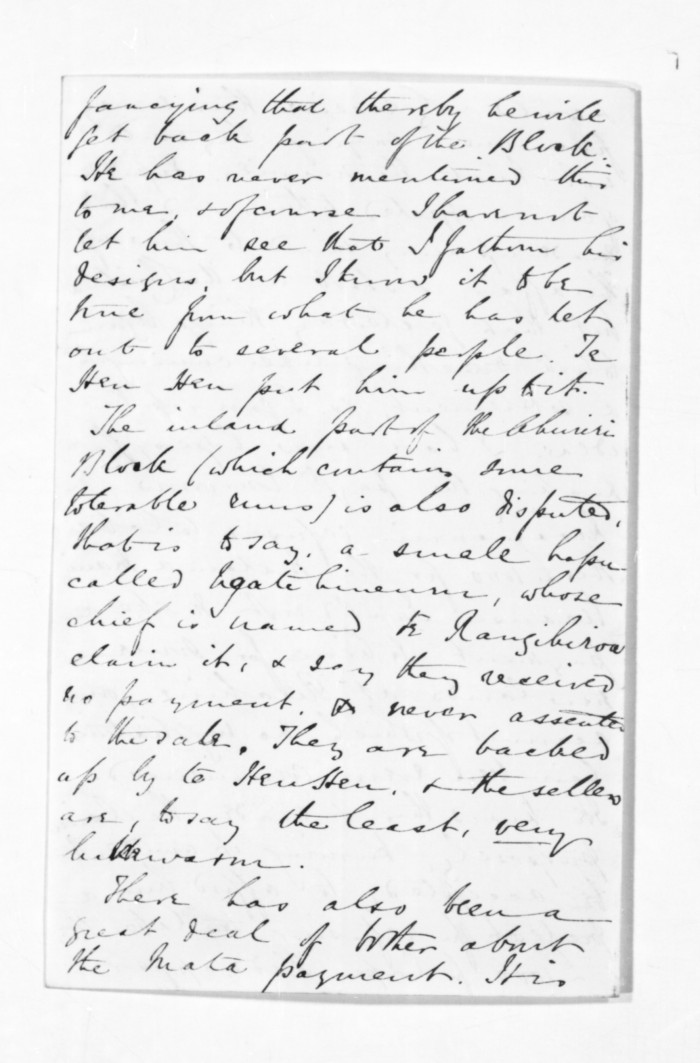 fancying that thereby he will
get back part of the Block.
He has never mentioned this
to me, & of course I have not
let him see that I fathom his
designs, but I know it to be
true from what he has let
out to several people. Te
Heu Heu put him up to it.
The inland part of the Ahuriri
Block (which contains some
tolerable runs) is also disputed,
that is to say, a small hapu
called Ngatihineuru, whose
chief is named Te Rangihiroa
claim it, & say they received
no payment, & never assented
to the sale. They are backed
up by te HeuHeu, & the sellers
are, to say the least, very
lukewarm.
There has also been a
great deal of bother about
the Mata payment. It is